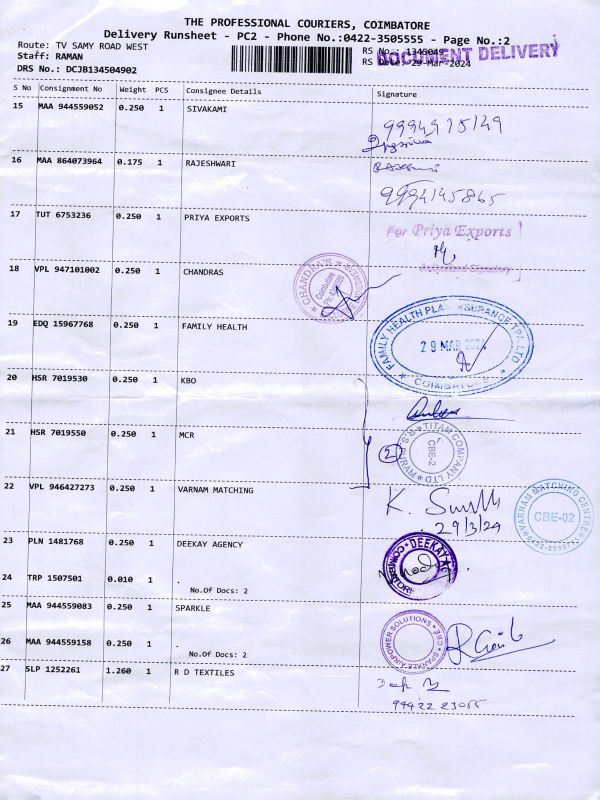 THE PROFESSIONAL COURIERS, COIMBATORE
Delivery Runsheet - PC2 - Phone No.:0422-3505555 - Page No.:2
Route: TV SAMY ROAD WEST
RS No.: 1345049
DOCUMENT DELIVERY
Staff: RAMAN
RS Date: 29-Mar-2024
DRS No.: DCJB134504902
S No Consignment No Weight PCS Consignee Details Signature
15 MAA 944559052 0.250 1 SIVAKAMI
9994975149
16 MAA 864073964 0.175 1 RAJESHWARI
9994145865
17 TUT 6753236 0.250 1 PRIYA EXPORTS
For Priya Exports
Authorised Signatory
18 VPL 947101002 0.250 1 CHANDRAS
CHANDRA'S
Coimbatore
19 EDQ 15967768 0.250 1 FAMILY HEALTH
FAMILY HEALTH PLAN INSURANCE TPA LTD
29 MAR 2024
COIMBATORE
20 HSR 7019530 0.250 1 KBO
21 HSR 7019550 0.250 1 MCR
TITAN COMPANY LTD
R.S. PURAM
CBE-2
2
22 VPL 946427273 0.250 1 VARNAM MATCHING
29/3/24
VARNAM MATCHING CENTRE
CBE-02
23 PLN 1481768 0.250 1 DEEKAY AGENCY
DEEKAY
COIMBATORE
24 TRP 1507501 0.010 1 .
No.Of Docs: 2
25 MAA 944559083 0.250 1 SPARKLE
SPARKLE AIRPOWER SOLUTIONS
CBE
26 MAA 944559158 0.250 1 .
No.Of Docs: 2
27 SLP 1252261 1.260 1 R D TEXTILES
94422 23055